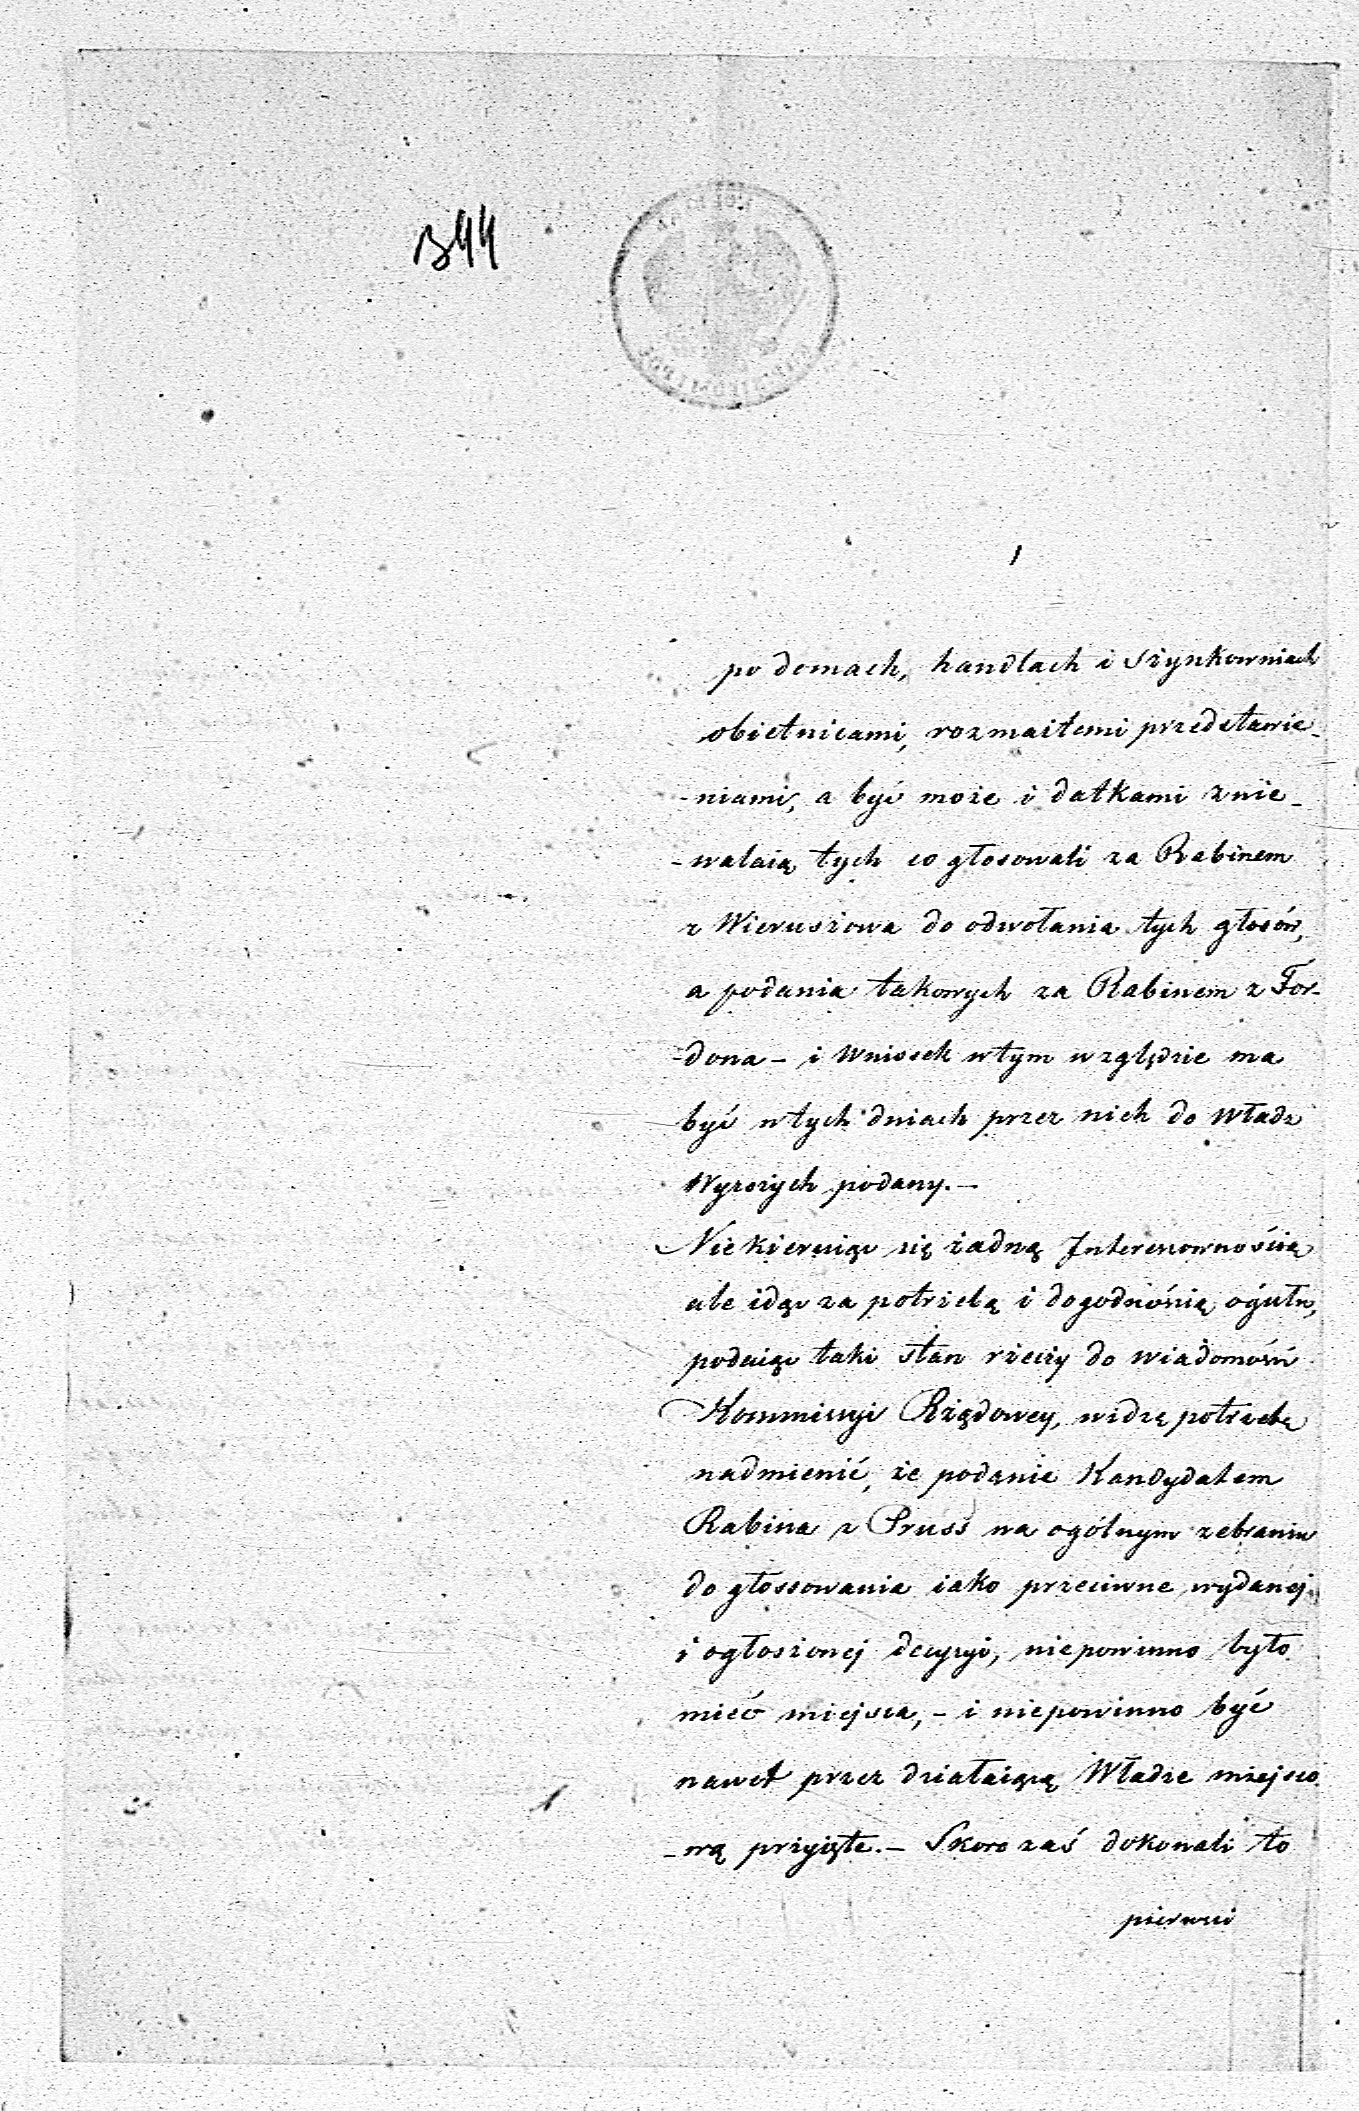 344
po domach, handlach i szynkowniach
obietnicami, rozmaitemi przedstawie-
-niami, a być może i datkami znie-
-walaią tych co głosowali za Rabinem
z Wieruszowa do odwołania tych głosów,
a podania takowych za Rabinem z For-
-dona - i wniosek w tym względzie ma
być w tych dniach przez nich do Władz
Wyższych podany. -
Nie kieruiąc się żadną Interessownością
ale idąc za potrzebą i dogodnością ogułu,
podaiąc taki stan rzeczy do wiadomości
Kommissyi Rządowey, widzę potrzebę
nadmienić, że podanie Kandydatem
Rabina z Pruss na ogólnym zebraniu
do głossowania iako przeciwne wydanej
i ogłoszonej decyzyi, niepowinno było
mieć miejsca, - i niepowinno być
nawet przez działaiącą Władze miejsco
-wą przyięte. - Skoro zaś dokonali to
pierwsi